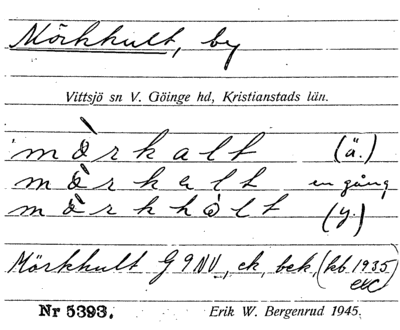 Mörkhult, by
Vittsjö sn V. Göinge hd, Kristianstads län.
mò̈rkalt (ä.)
mò̈rkalt en gång
mò̈rkhòlt (y.)
Mörkhult G9NV, ek, bek. (kb. 1935
exc)
Nr 5393. Erik W. Bergenrud 1945.